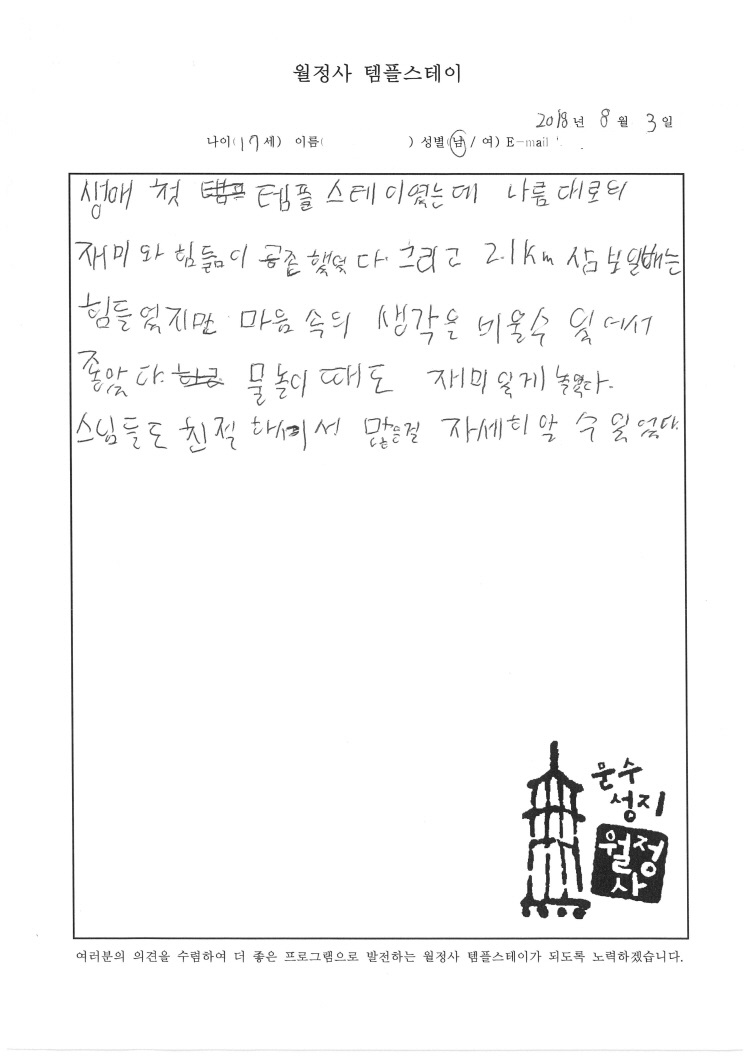 월정사 템플스테이
2018년 8월 3일
나이(17세) 이름( ) 성별(남/여) E-mail
생애 첫 템플스테이였는데 나름대로의
재미와 힘듦이 공존했었다. 그리고 2.1km 삼보일배는
힘들었지만 마음 속의 생각을 비울수 있어서
좋았다. 물놀이 때도 재미있게 놀았다.
스님들도 친절하셔서 많은걸 자세히 알 수 있었다.
문수
성지
월정
사
여러분의 의견을 수렴하여 더 좋은 프로그램으로 발전하는 월정사 템플스테이가 되도록 노력하겠습니다.